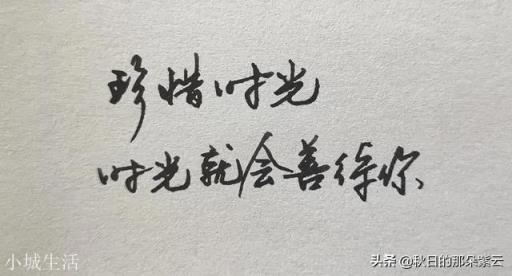 珍惜时光
时光就会善待你
小城生活
头条 @秋日的那朵紫云